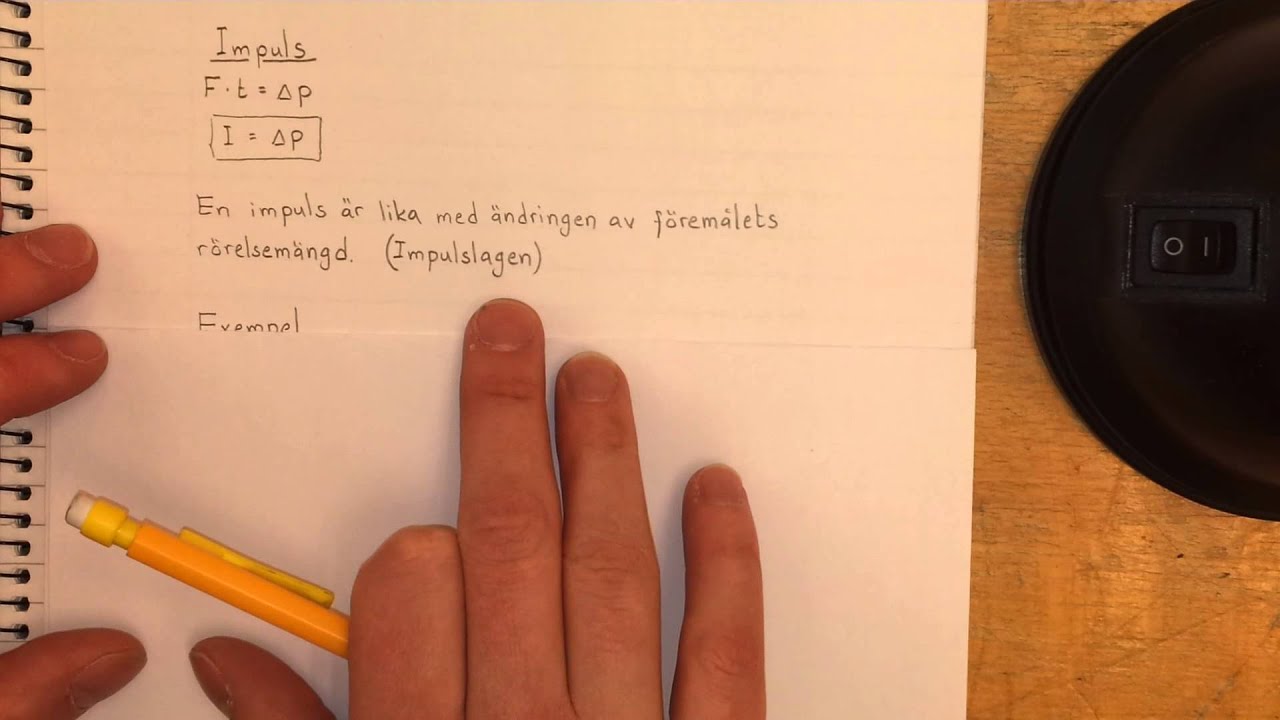 Impuls
F·t = Δp
I = Δp
En impuls är lika med ändringen av föremålets
rörelsemängd. (Impulslagen)
Exempel
O I